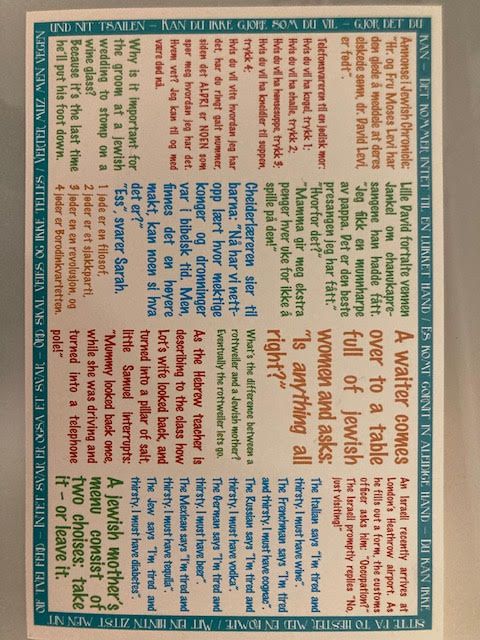 UND NIT TSAILEN – KAN DU IKKE GJØRE SOM DU VIL – GJØR DET DU
KAN – DET KOMMER INTET TIL EN LUKKET HÅND / ES KOMT GORNIT IN ALEDIGE HAND – DU KAN IKKE
Annonse i Jewish Chronicle:
"Hr. og Fru Moses Levi har
den glede å meddele at deres
elskede sønn, dr. David Levi,
er født".
Telefonsvareren til en jødisk mor:
Hvis du vil ha kugel, trykk 1;
Hvis du vil ha challe, trykk 2;
Hvis du vil ha hønsesuppe, trykk 3;
Hvis du vil ha kneidler til suppen,
trykk 4;
Hvis du vil vite hvordan jeg har
det, har du ringt galt nummer,
siden det ALDRI er NOEN som
spør meg hvordan jeg har det.
Hvem vet? Jeg kan til og med
være død nå.
Why is it important for
the groom at a jewish
wedding to stomp on a
wine glass?
Because it's the last time
he'll put his foot down.
Lille David fortalte vennen
Jankel om chanukapre-
sangene han hadde fått:
"Jeg fikk en munnharpe
av pappa. Det er den beste
presangen jeg har fått."
"Hvorfor det?"
"Mamma gir meg ekstra
penger hver uke for ikke å
spille på den!"
Cheiderlæreren sier til
barna: "Nå har vi nett-
opp lært hvor mektige
konger og dronninger
var i bibelsk tid. Men,
finnes det en høyere
makt, kan noen si hva
det er?"
"Ess", svarer Sarah.
1 jøde er en filosof,
2 jøder er et sjakkparti,
3 jøder en en revolusjon og
4 jøder er Borodinkvartetten.
A waiter comes
over to a table
full of jewish
women and asks:
"Is anything all
right?"
What's the difference between a
rottweiler and a Jewish mother?
Eventually the rottweiler lets go.
As the Hebrew teacher is
describing to the class how
Lot's wife looked back, and
turned into a pillar of salt,
little Samuel interrupts:
"Mummy looked back once,
while she was driving and
turned into a telephone
pole!"
An Israeli recently arrives at
London's Heathrow airport. As
he fills out a form, the customs
officer asks him: "Occupation?"
The Israeli promptly replies "No,
just visiting!"
The Italian says "I'm tired and
thirsty. I must have wine".
The Frenchman says "I'm tired
and thirsty. I must have cognac".
The Russian says "I'm tired and
thirsty. I must have vodka".
The German says "I'm tired and
thirsty. I must have beer".
The Mexican says "I'm tired and
thirsty. I must have tequila".
The Jew says "I'm tired and
thirsty. I must have diabetes".
A jewish mother's
menu consist of
two choises; take
it – or leave it.